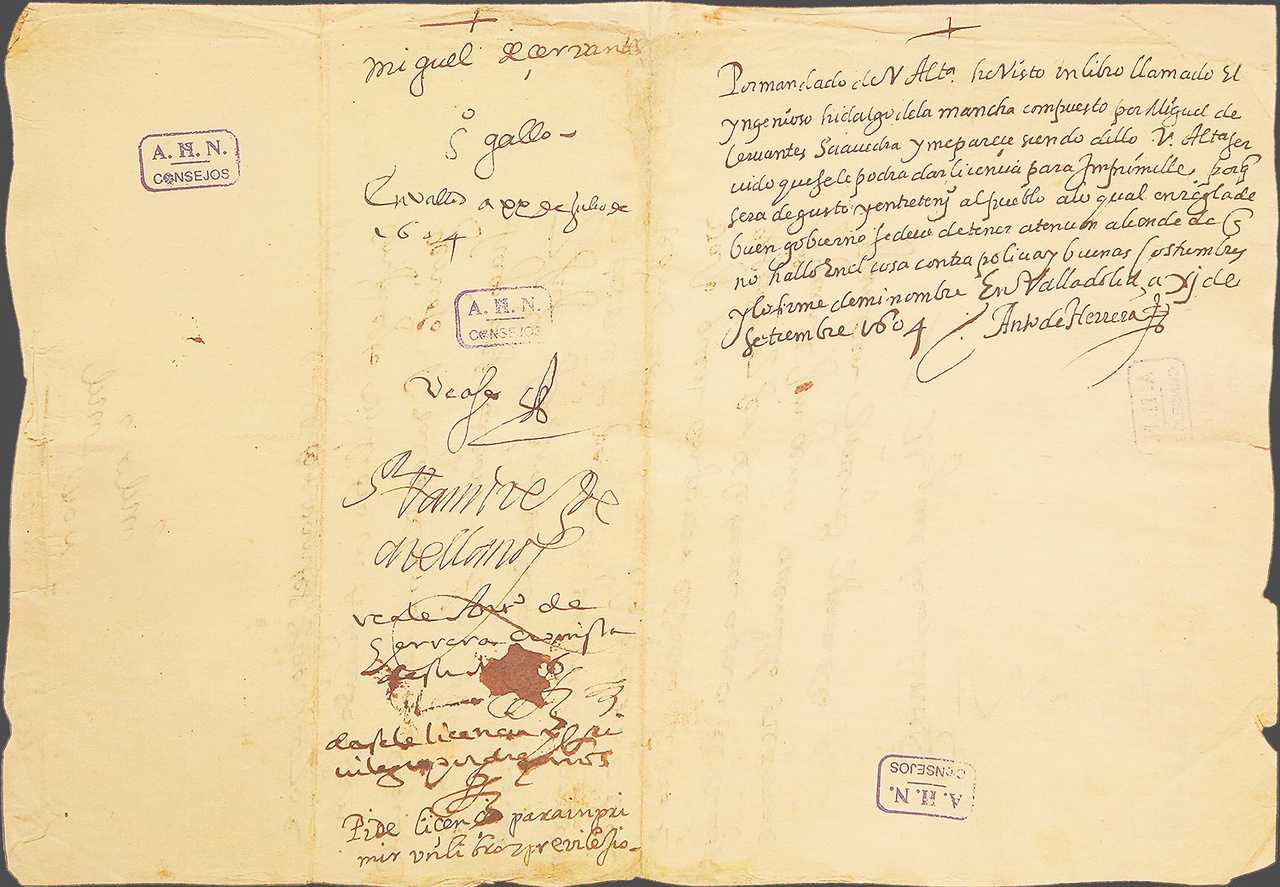 Miguel de cervantes
Sº gallo
En Vallid a xx de Julio de
1604
A. H. N.
CONSEJOS
A. H. N.
CONSEJOS
Vease
Sr Ramirez de
arellano
veale Antº de
Herrera cronista
de su
dasele licencia y pri
uilegio por diez años
Pide licencia para inpri
mir vn libro z previlesio
Por mandado de V Altª he Visto vn libro llamado El
yngenioso hidalgo de la mancha compuesto por Miguel de
Cervantes Saavedra y me pareçe siendo dello Vª Altª ser
uido que se le podra dar licencia para Imprimille, porq
sera de gusto y entretenimº al pueblo a lo qual en regla de
buen gobierno se deue de tener atencion aliende de q
no hallo En el cosa contra policia y buenas Costumbres
y lo firme de mi nombre En Valladolid a xj de
Setiembre 1604
Antº de Herrera
A. H. N.
CONSEJOS
A. H. N.
CONSEJOS